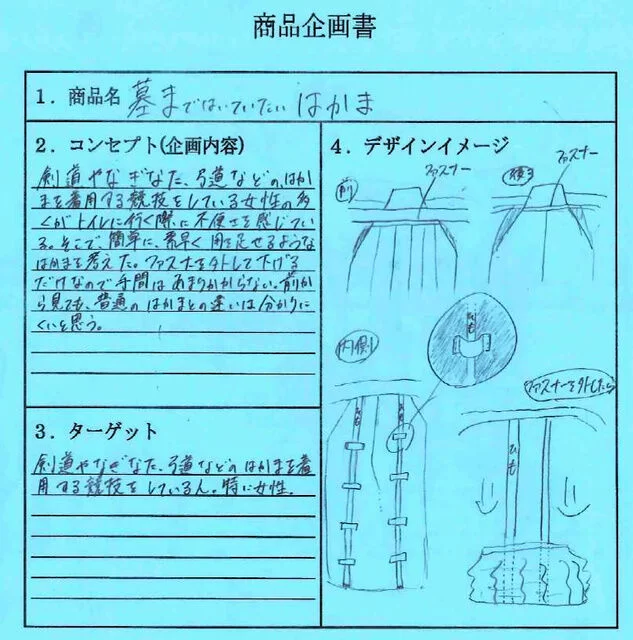 商品企画書
1．商品名 墓まではいていたい はかま
2．コンセプト(企画内容)
剣道やなぎなた、弓道などのはか
まを着用する競技をしている女性の多
くがトイレに行く際に不便さを感じてい
る。そこで簡単に、素早く用を足せるような
はかまを考えた。ファスナーを外して下げる
だけなので手間はあまりかからない。前か
ら見ても、普通のはかまとの違いは分かりに
くいと思う。
3．ターゲット
剣道やなぎなた、弓道などのはかまを着
用する競技をしている人。特に女性。
4．デザインイメージ
前
ファスナー
後ろ
ファスナー
内側
ひも
ファスナーを外したら
ひも